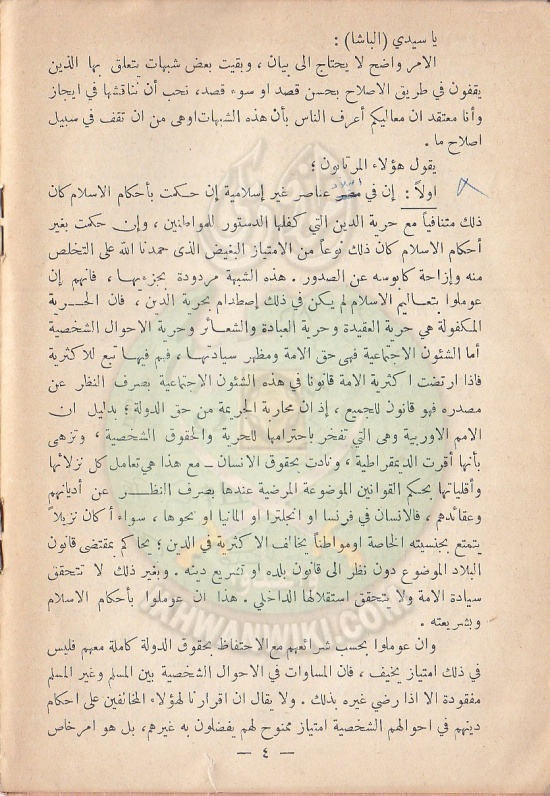 يا سيدي (الباشا) :
الامر واضح لا يحتاج الى بيان ، وبقيت بعض شبهات يتعلق بها الذين
يقفون في طريق الاصلاح بحسن قصد او سوء قصد، نحب أن نناقشها في ايجاز
وأنا معتقد ان معاليكم أعرف الناس بأن هذه الشبهات اوهى من ان تقف في سبيل
اصلاح ما .
يقول هؤلاء المرتابون ؛
اولاً : إن في مصر عناصر غير إسلامية إن حكمت بأحكام الاسلام كان
ذلك متنافياً مع حرية الدين التي كفلها الدستور للمواطنين ، وإن حكمت بغير
أحكام الاسلام كان ذلك نوعاً من الامتياز البغيض الذى حمدنا الله على التخلص
منه وإزاحة كابوسه عن الصدور . هذه الشبهة مردودة بجزءيها ، فانهم إن
عوملوا بتعاليم الاسلام لم يكن في ذلك إصطدام بحرية الدين ، فان الحرية
المكفولة هي حرية العقيدة وحرية العبادة والشعائر وحرية الاحوال الشخصية
أما الشئون الاجتماعية فهى حق الامة ومظهر سيادتها ، فهم فيها تبع للاكثرية
فاذا ارتضت اكثرية الامة قانونا في هذه الشئون الاجتماعية بصرف النظر عن
مصدره فهو قانون للجميع ، إذ ان محاربة الجريمة من حق الدولة ؛ بدليل ان
الامم الاوربية وهى التي تفخر باحترامها للحرية والحقوق الشخصية ، وتزهى
بأنها أقرت الديمقراطية ، ونادت بحقوق الانسان ــ مع هذا هي تعامل كل نزلائها
وأقلياتها بحكم القوانين الموضوعة المرضية عندها بصرف النظر عن أديانهم
وعقائدهم ، فالانسان في فرنسا او انجلترا او المانيا او نحوها ، سواء أ كان نزيلاً
يتمتع بجنسيته الخاصة او مواطناً يخالف الاكثرية في الدين ؛ يحاكم بمقتضى قانون
البلاد الموضوع دون نظر الى قانون بلده او تشريع دينه . وبغير ذلك لا تتحقق
سيادة الامة ولا يتحقق استقلالها الداخلي . هذا ان عوملوا بأحكام الاسلام
وبشريعته .
وان عوملوا بحسب شرائعهم مع الاحتفاظ بحقوق الدولة كاملة معهم فليس
في ذلك امتياز يخيف ، فان المساوات في الاحوال الشخصية بين المسلم وغير المسلم
مفقودة الا اذا رضي غيره بذلك . ولا يقال ان اقرارنا لهؤلاء المخالفين على احكام
دينهم في احوالهم الشخصية امتياز ممنوح لهم يفضلون به غيرهم، بل هو امر خاص
— ٤ —
IKHWANWIKI.COM